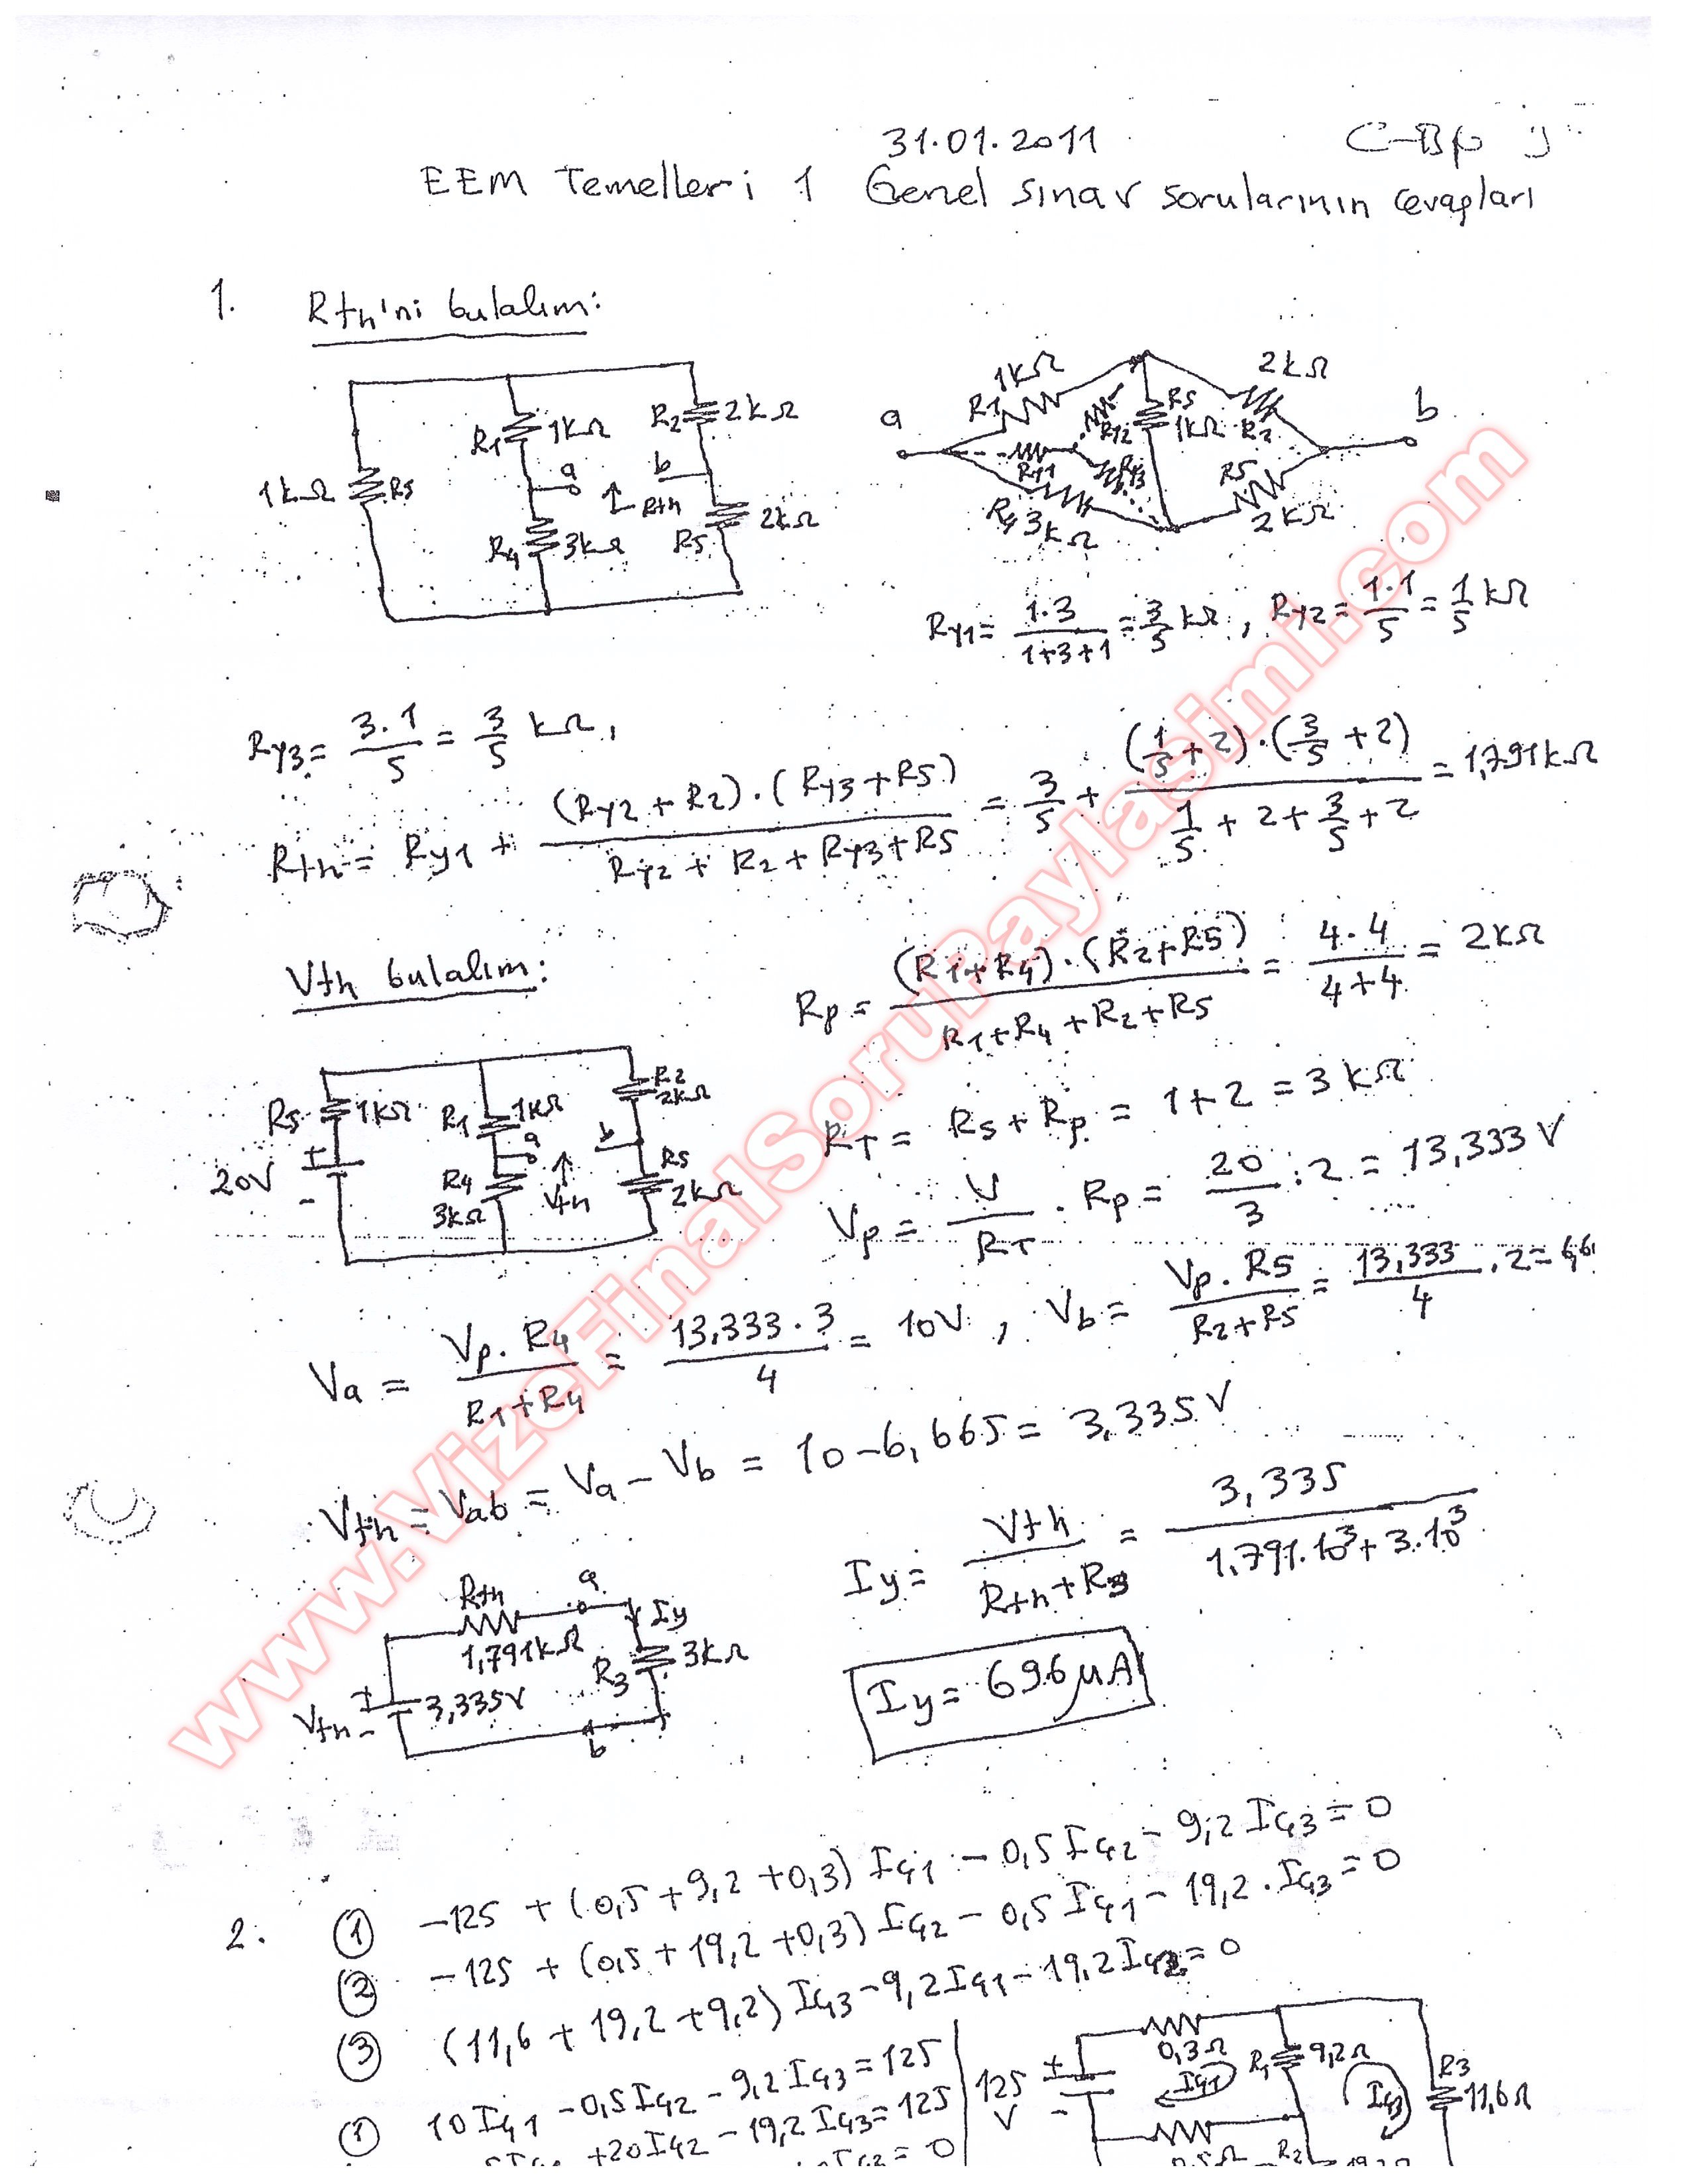 31.01.2011
EEM Temelleri 1 Genel sınav sorularının cevapları
1. Rth'ni bulalım:
1kΩ Rs R1 1kΩ R2 2kΩ a b Rth R4 3kΩ R5 2kΩ
a R1 1kΩ Ry2 Rs 1kΩ 2kΩ R2 b Ry1 Ry3 R4 3kΩ R5 2kΩ
Ry1 = 1.3 / 1+3+1 = 3/5 kΩ, Ry2 = 1.1 / 5 = 1/5 kΩ
Ry3 = 3.1 / 5 = 3/5 kΩ,
Rth = Ry1 + (Ry2 + R2).(Ry3 + R5) / Ry2 + R2 + Ry3 + R5 = 3/5 + (1/5 + 2).(3/5 + 2) / 1/5 + 2 + 3/5 + 2 = 1,791kΩ
Vth bulalım:
Rp = (R1+R4).(R2+R5) / R1+R4+R2+R5 = 4.4 / 4+4 = 2kΩ
Rs 1kΩ 20V + - R1 1kΩ a R4 3kΩ Vth b R2 2kΩ R5 2kΩ
RT = Rs + Rp = 1+2 = 3kΩ
Vp = V / RT . Rp = 20 / 3 . 2 = 13,333 V
Va = Vp.R4 / R1+R4 = 13,333.3 / 4 = 10V, Vb = Vp.R5 / R2+R5 = 13,333 / 4 . 2 = 6,6
Vth = Vab = Va - Vb = 10 - 6,665 = 3,335 V
Iy = Vth / Rth + R3 = 3,335 / 1,791.10³ + 3.10³
Rth 1,791kΩ a Iy R3 3kΩ Vth + - 3,335V b
Iy = 696 μA
2. ① -125 + (0,5 + 9,2 + 0,3) Iç1 - 0,5 Iç2 - 9,2 Iç3 = 0
② -125 + (0,5 + 19,2 + 0,3) Iç2 - 0,5 Iç1 - 19,2 . Iç3 = 0
③ (11,6 + 19,2 + 9,2) Iç3 - 9,2 Iç1 - 19,2 Iç2 = 0
① 10 Iç1 - 0,5 Iç2 - 9,2 Iç3 = 125
+20 Iç2 - 19,2 Iç3 = 125
= 0
125 V + - 0,3Ω Iç1 R1 9,2Ω Iç3 R3 11,6Ω
R2
www.VizeFinalSoruPaylasimi.com